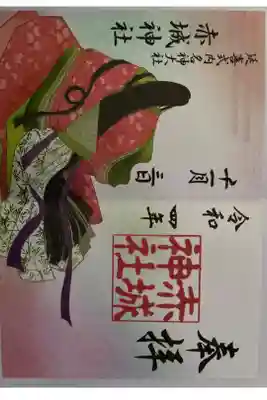 奉拝
令和四年
十一月三日
赤城
神社
延喜式内名神大社
赤城神社